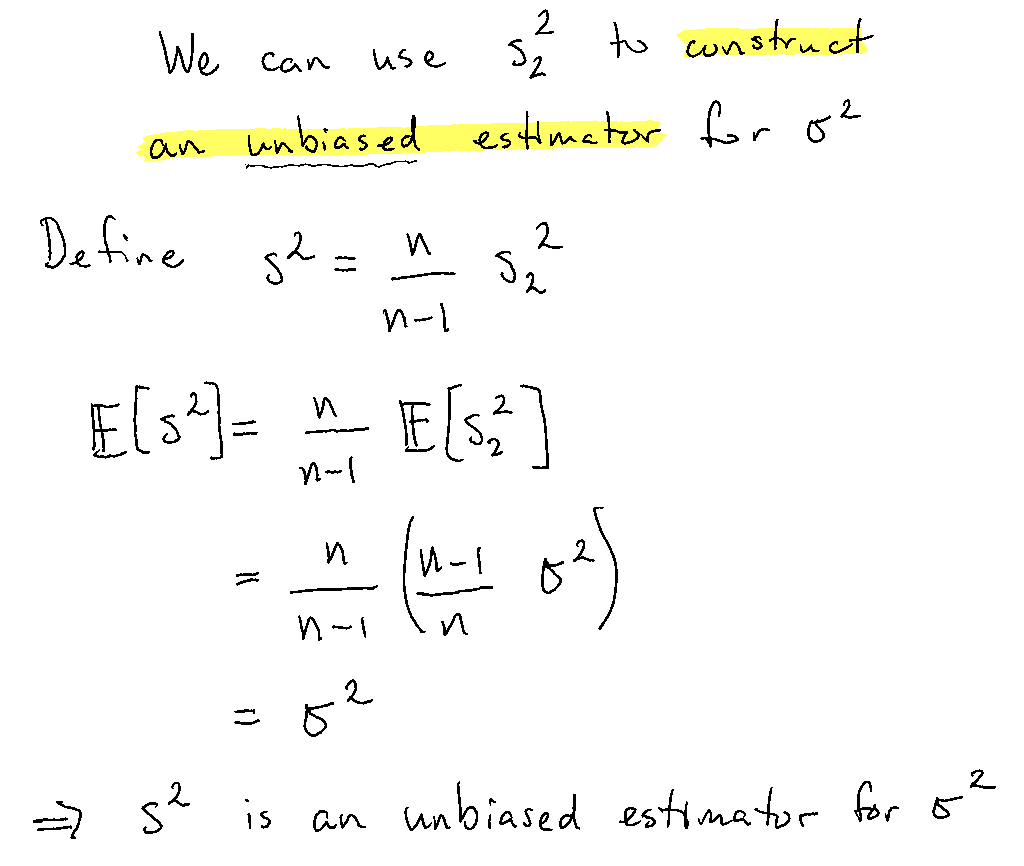 We can use s₂² to construct
an unbiased estimator for σ²
Define s² = n/(n-1) s₂²
𝔼[s²] = n/(n-1) 𝔼[s₂²]
= n/(n-1) ((n-1)/n σ²)
= σ²
⇒ s² is an unbiased estimator for σ²